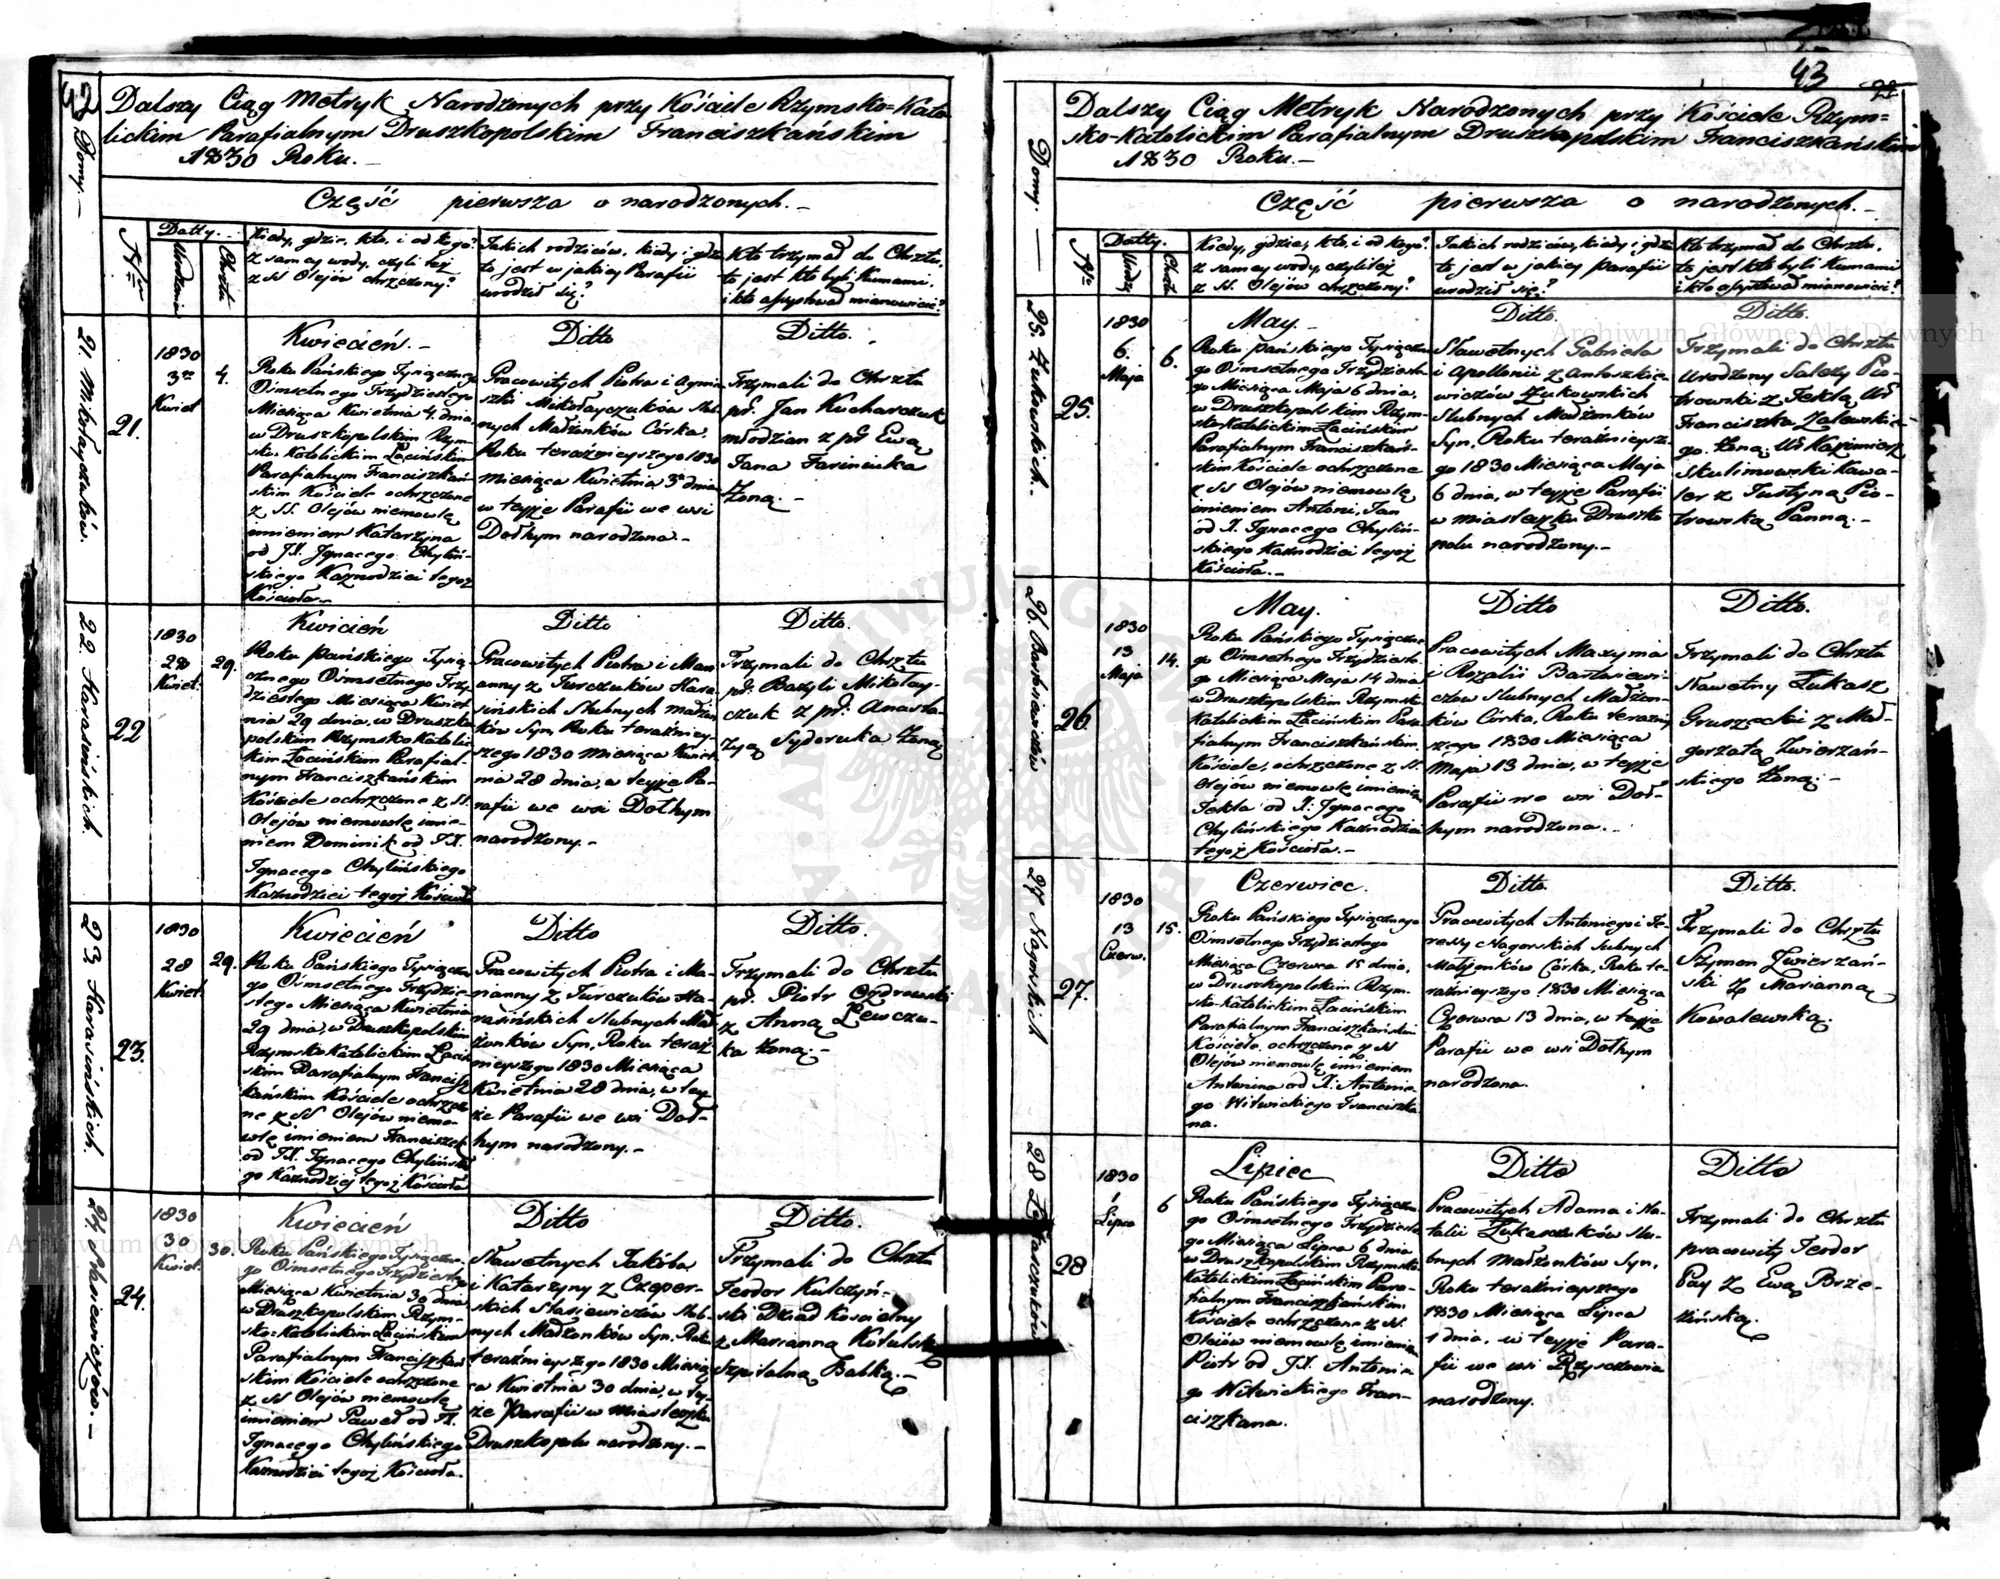 42
Dalszy Ciąg Metryk Narodzonych przy Kościele Rzymsko=Kato-
lickim Parafialnym Druszkopolskim Franciszkańskim
1830 Roku.—
Domy.—
Część pierwsza o narodzonych.—
Datty.
Urodzenia
Chrztu
Kiedy, gdzie, kto, i od kogo?
z samey wody, czyli też
z SS Olejów chrzczony?
Jakich rodziców, kiedy i gdzie
to jest w jakiey Parafii
urodził się?
Kto trzymał do Chrztu,
to jest kto byli Kumami,
i kto assystował mianowicie?
21. Mikołayczuków.
21.
1830
3
Kwiet
4.
Kwiecień.—
Roku Pańskiego Tysiącznego
Ośmsetnego Trzydziestego
Miesiąca Kwietnia 4. dnia,
w Druszkopolskim Rzym-
sko Katolickim Łacińskim
Parafialnym Franciszkań-
skim Kościele ochrzczone
z SS. Olejów niemowlę
imieniem Katarzyna
od J.X. Ignacego Chyliń-
skiego Kaznodziei tegoż
Kościoła.—
Ditto
Pracowitych Piotra i Agnie-
szki Mikołayczuków Ślub-
nych Małżonków Córka,
Roku teraźnieyszego 1830
Miesiąca Kwietnia 3 dnia
w teyże Parafii we wsi
Dołhym narodzona.—
Ditto.
Trzymali do Chrztu
pr. Jan Kucharczuk
młodzian z pr Ewą
Jana
Żoną.—
22. Harasińskich.
22
1830
28
Kwiet.
29.
Kwiecień
Roku Pańskiego Tysią-
cznego Ośmsetnego Trzy-
dziestego Miesiąca Kwiet-
nia 29 dnia, w Druszko-
polskim Rzymsko Katolic-
kim Łacińskim Parafial-
nym Franciszkańskim
Kościele ochrzczone z SS.
Olejów niemowlę imie-
niem Dominik od J.X.
Ignacego Chylińskiego
Kaznodziei tegoż Kościoła
Ditto
Pracowitych Piotra i Mary-
anny z Jurczuków Hara-
sińskich Ślubnych Małżon-
ków Syn, Roku teraźniey-
szego 1830 Miesiąca Kwiet-
nia 28 dnia, w teyże Pa-
rafii we wsi Dołhym
narodzony.—
Ditto.
Trzymali do Chrztu
pr. Bazyli Mikołay-
czuk z pr: Anasta-
zyą Sydoruka Żoną
23 Harasińskich.
23.
1830
28
Kwiet.
29.
Kwiecień
Roku Pańskiego Tysiączne-
go Ośmsetnego Trzydzie-
stego Miesiąca Kwietnia
29 dnia, w Druszkopolskim
Rzymsko Katolickim Łaciń-
skim Parafialnym Francisz-
kańskim Kościele ochrzczo-
ne z SS Olejów niemo-
wlę imieniem Franciszek
od J.X. Ignacego Chylińskie-
go Kaznodziej tegoż Kościoła
Ditto
Pracowitych Piotra i Ma-
rianny z Jurczuków Ha-
rasińskich Ślubnych Mał-
żonków Syn, Roku teraź-
nieyszego 1830 Miesiąca
Kwietnia 28 dnia, w tey-
że Parafii we wsi Doł-
hym narodzony.—
Ditto.
Trzymali do Chrztu
pr. Piotr Ozdrowski
z Anną Lewczu-
ka Żoną.—
24. Stasiewiczów.—
24.
1830
30
Kwiet.
30.
Kwiecień
Roku Pańskiego Tysiączne-
go Ośmsetnego Trzydziestego
Miesiąca Kwietnia 30 dnia
w Druszkopolskim Rzym-
sko-Katolickim Łacińskim
Parafialnym Franciszkań-
skim Kościele ochrzczone
z SS Olejów niemowlę
imieniem Paweł od JX.
Ignacego Chylińskiego
Kaznodziei tegoż Kościoła.
Ditto
Sławetnych Jakóba
i Katarzyny z Czeper-
skich Stasiewiczów Ślub-
nych Małżonków Syn, Roku
teraźnieyszego 1830 Miesią-
ca Kwietnia 30 dnia, w tey-
że Parafii w Miasteczku
Druszkopolu narodzony.—
Ditto.
Trzymali do Chrztu
Teodor Kulczyń-
ski Dziad Kościelny
z Marianną Kotulską
Szpitalną Babką.—
43
22
Dalszy Ciąg Metryk Narodzonych przy Kościele Rzym=
sko-Katolickim Parafialnym Druszkopolskim Franciszkańskim
1830 Roku.—
Domy.—
Część pierwsza o narodzonych.—
Datty.
Urodz.
Chrztu
Kiedy, gdzie, kto, i od kogo?
z samey wody, czyli też
z SS. Olejów chrzczony?
Jakich rodziców, kiedy i gdzie
to jest w jakiey Parafii
urodził się?
Kto trzymał do Chrztu,
to jest kto byli Kumami
i kto assystował mianowicie?
25. Żukowskich.—
25.
1830
6.
Maja
6.
May.—
Roku Pańskiego Tysiączne-
go Ośmsetnego Trzydzieste-
go Miesiąca Maja 6 dnia,
w Druszkopolskim Rzym-
sko-Katolickim Łacińskim
Parafialnym Franciszkań-
skim Kościele ochrzczone
z SS Olejów niemowlę
imieniem Antoni, Jan
od X. Ignacego Chyliń-
skiego Kaznodziei tegoż
Kościoła.—
Ditto.
Sławetnych Gabriela
i Apollonii z Antoszkie-
wiczów Żukowskich
Ślubnych Małżonków
Syn, Roku teraźnieysze-
go 1830 Miesiąca Maja
6 dnia, w teyże Parafii
w miasteczku Druszko-
polu narodzony.—
Ditto.
Trzymali do Chrztu
Urodzony Salezy Pio-
trowski z Teklą Ur
Franciszka Zalewskie-
go. Żoną, Ur Kazimierz
Skulimowski Kawa-
ler z Justyną Pio-
trowską Panną.—
26. Bartosiewiczów
26.
1830
13
Maja
14.
May.
Roku Pańskiego Tysiączne-
go Ośmsetnego Trzydzieste-
go Miesiąca Maja 14 dnia
w Druszkopolskim Rzymsko
Katolickim Łacińskim Para-
fialnym Franciszkańskim
Kościele, ochrzczone z SS.
Olejów niemowlę imieniem
Tekla od X: Ignacego
Chylińskiego Kaznodziei
tegoż Kościoła.—
Ditto
Pracowitych Maxyma
i Rozalii Bartosiewi-
czów Ślubnych Małżon-
ków Córka, Roku teraźniey-
szego 1830 Miesiąca
Maja 13 dnia, w teyże
Parafii we wsi Doł-
hym narodzona.—
Ditto.
Trzymali do Chrztu
Sławetny Łukasz
Gruszecki z Mał-
gorzatą Zwierzań-
skiego Żoną.—
27 Nagorskich
27.
1830
13
Czerw.
15.
Czerwiec.
Roku Pańskiego Tysiącznego
Ośmsetnego Trzydziestego
Miesiąca Czerwca 15 dnia,
w Druszkopolskim Rzym-
sko-Katolickim Łacińskim
Parafialnym Franciszkańskim
Kościele, ochrzczone z SS
Olejów niemowlę imieniem
Antonina od X. Antonie-
go Witwickiego Franciszka-
na.
Ditto.
Pracowitych Antoniego i Te-
ressy Nagorskich Ślubnych
Małżonków Córka, Roku te-
raźnieyszego 1830 Miesiąca
Czerwca 13 dnia, w teyże
Parafii we wsi Dołhym
narodzona.
Ditto.
Trzymali do Chrztu
Szymon Zwierzań-
ski z Marianną
Kowalewską.
28
28
1830
1
Lipca
6
Lipiec
Roku Pańskiego Tysiączne-
go Ośmsetnego Trzydzieste-
go Miesiąca Lipca 6 dnia
w Druszkopolskim Rzymsko
Katolickim Łacińskim Para-
fialnym Franciszkańskim
Kościele ochrzczone z SS.
Olejów niemowlę imieniem
Piotr od J.X. Antonie-
go Witwickiego Fran-
ciszkana.
Ditto
Pracowitych Adama i Na-
talii Łukaszuków Ślu-
bnych Małżonków Syn,
Roku teraźnieyszego
1830 Miesiąca Lipca
1 dnia, w teyże Para-
fii we wsi Rzyszczowia
narodzony.
Ditto
Trzymali do Chrztu
pracowity Teodor
Pay z Ewą Brze-
zińską.
Archiwum Główne Akt Dawnych
Archiwum Główne Akt Dawnych